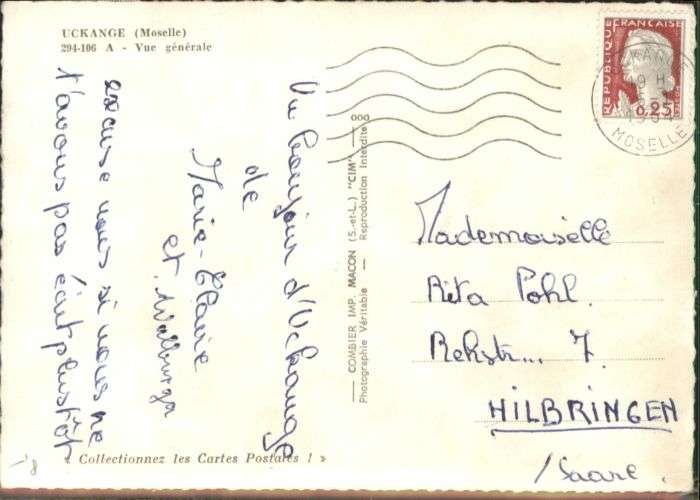 UCKANGE (Moselle)
294-106 A - Vue générale
Un bonjour d'Uckange
de
Marie-Claire
et Walburga
excuse nous si nous ne
t'avons pas écrit plustôt
« Collectionnez les Cartes Postales ! »
COMBIER IMP. MACON (S.-et-L.) "CIM"
Photographie Véritable — Reproduction Interdite
ooo
REPUBLIQUE FRANÇAISE
0,25
19 H
MOSELLE
Mademoiselle
Rita Pohl.
Rehstr... 7.
HILBRINGEN
/Saarl.